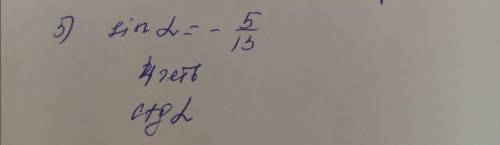 5) sin α = - 5/13
4 четв
ctg α